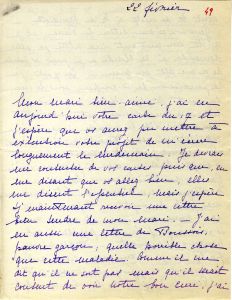 22 février
49
Mon mari bien-aimé, j'ai eu
aujourd'hui votre carte du 17 et
j'espère que vous avez pu mettre à
exécution votre projet de m'écrire
longuement le lendemain. Je devrais
me contenter de vos cartes puisque, en
me disant que vous allez bien, elles
me disent l'essentiel mais j'espère
maintenant recevoir une lettre
bien tendre de mon mari. — J'ai
eu aussi une lettre de
pauvre garçon, quelle pénible chose
que cette maladie. Comme il me
dit qu'il ne ont pas mais qu'il serait
content de voir notre bon curé, j'ai